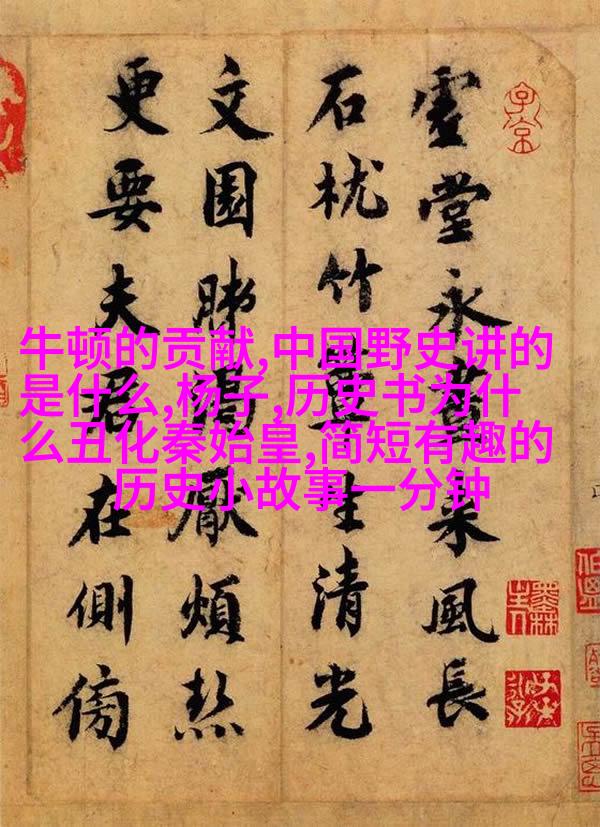 虛堂永晝来風長
石枕竹簟生清光
文園肺渴厭煩熱
更要夫君在側傍
牛顿的贡献,中国野史讲的
是什么,杨子,历史书为什
么丑化秦始皇,简短有趣的
历史小故事一分钟